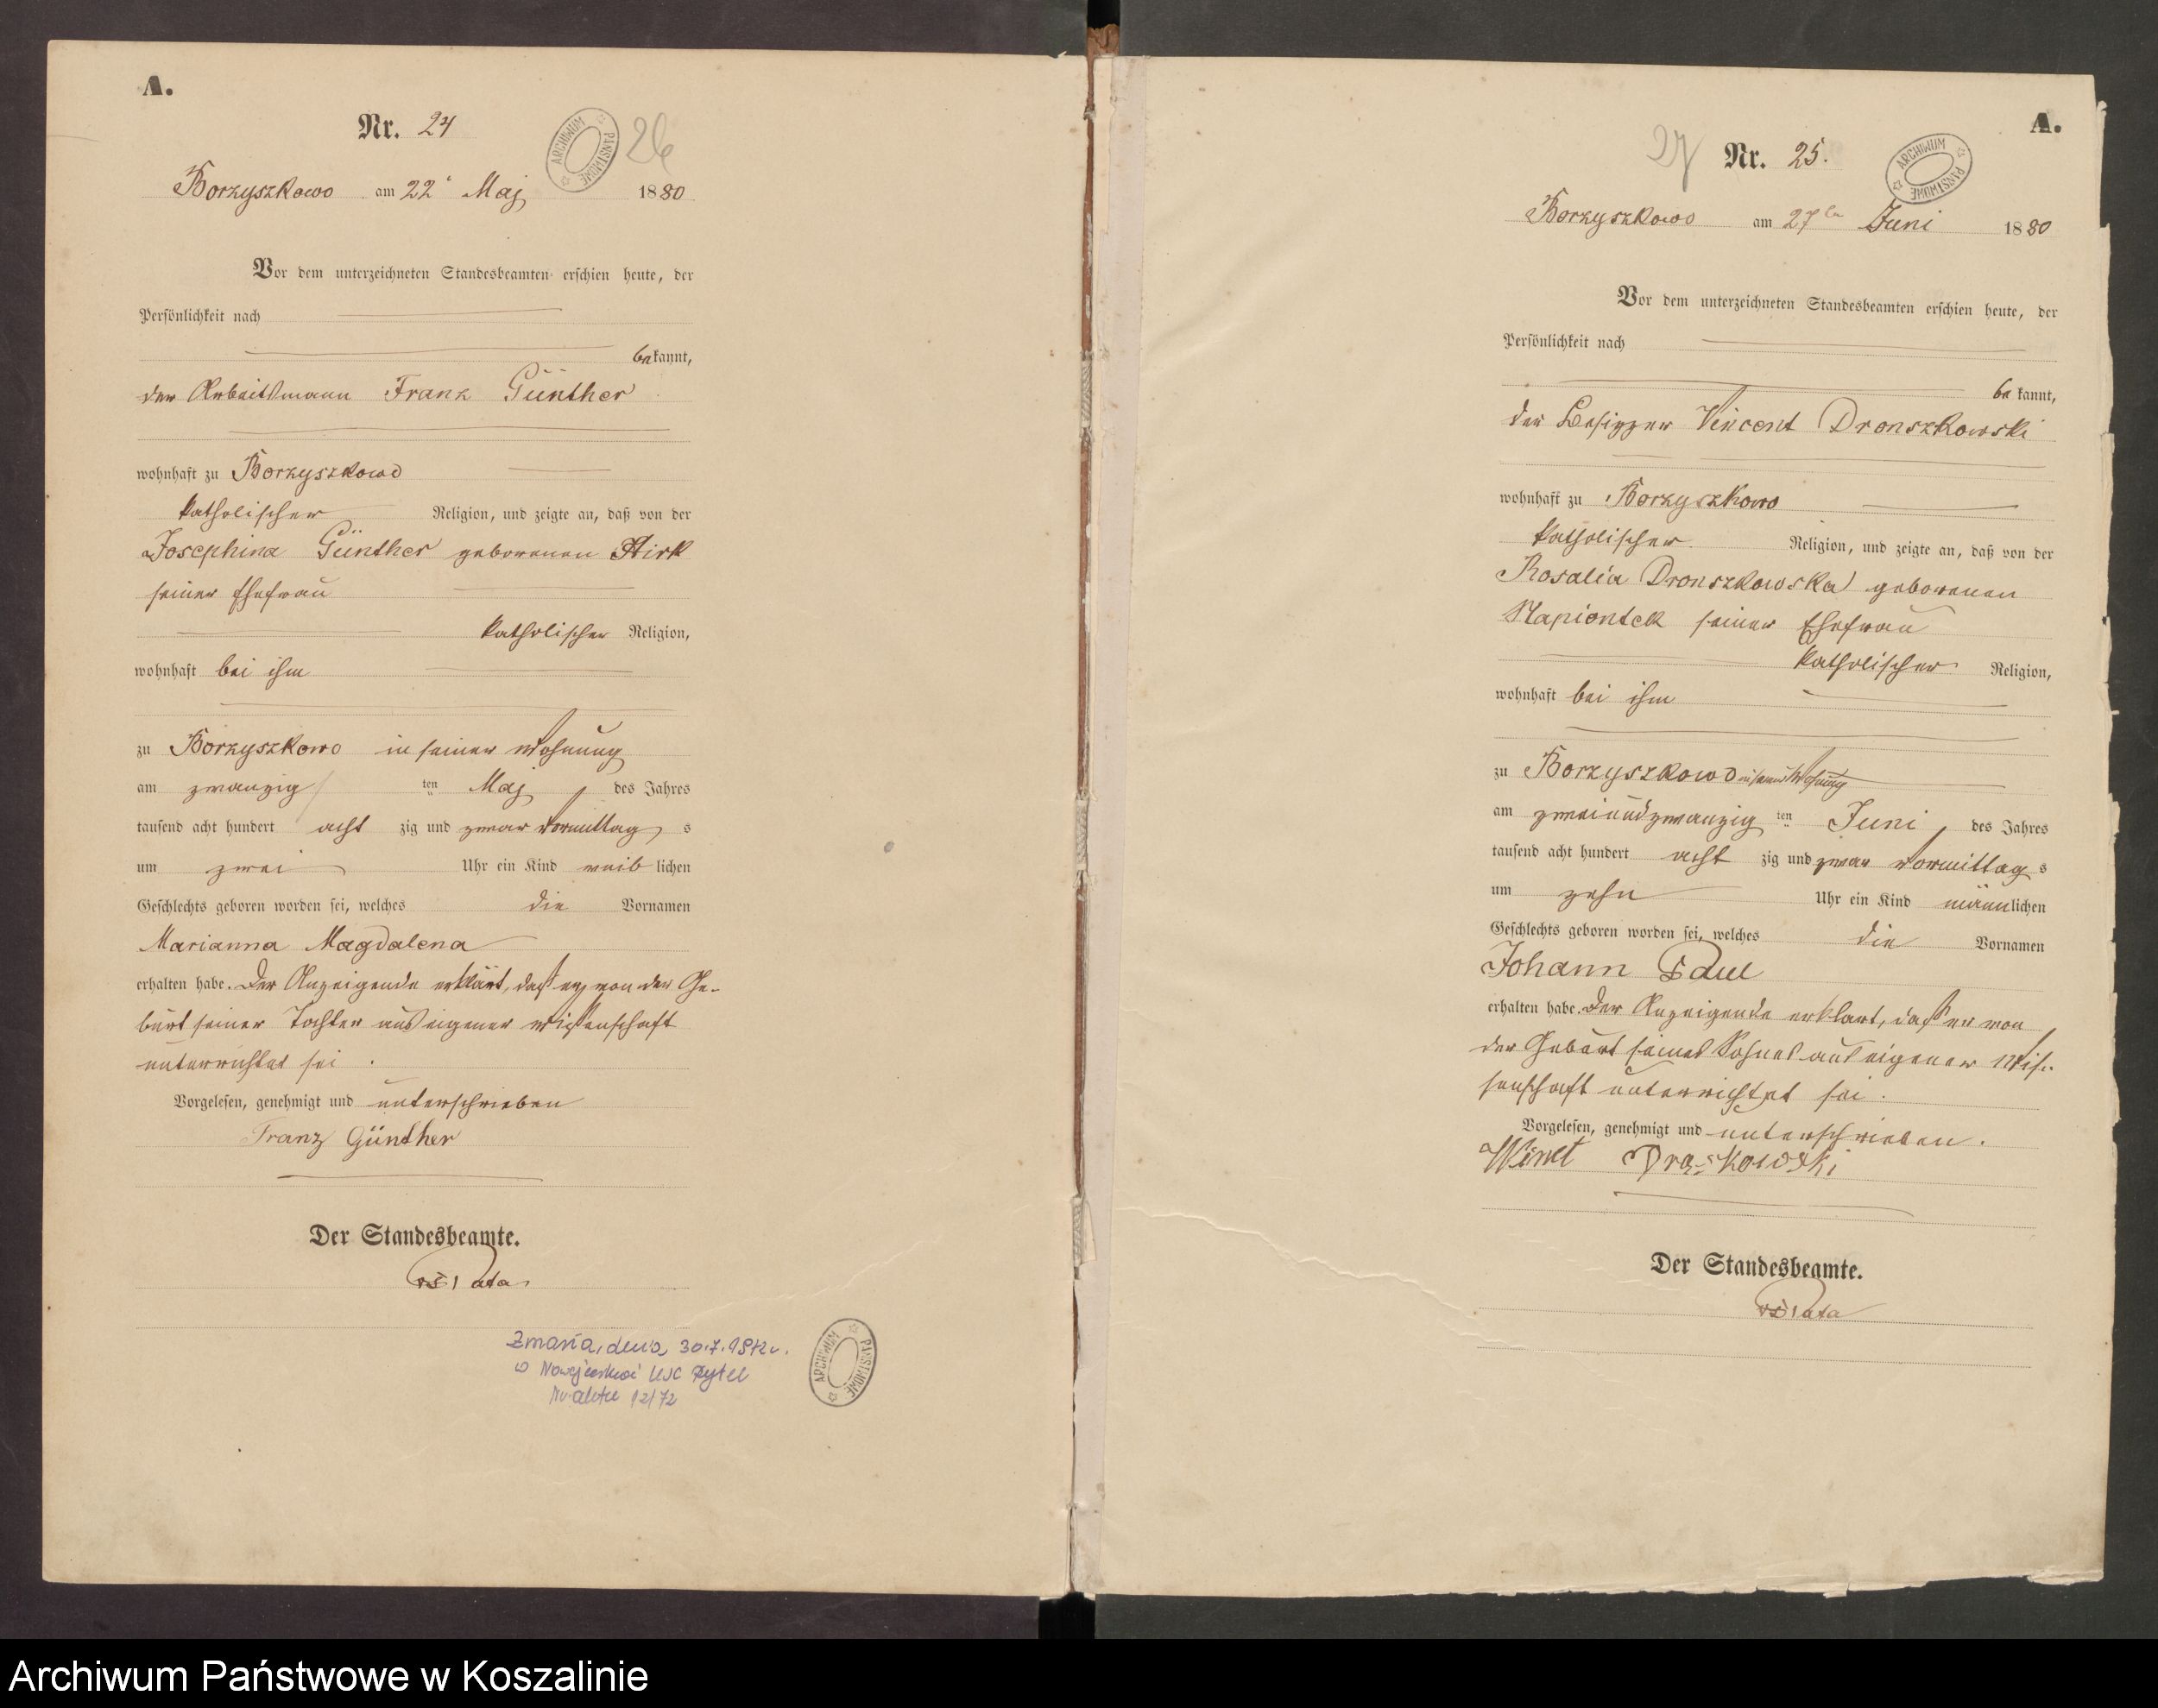 A.
Nr. 24
26
ARCHIWUM PAŃSTWOWE
Borzyszkowo am 22 Maj 1880
Vor dem unterzeichneten Standesbeamten erschien heute, der
Persönlichkeit nach
bekannt,
der Arbeitsmann Franz Günther
wohnhaft zu Borzyszkowo
katholischer Religion, und zeigte an, daß von der
Josephina Günther geborenen
seiner Ehefrau
katholischer Religion,
wohnhaft bei ihm
zu Borzyszkowo in seiner Wohnung
am zwanzig ten Maj des Jahres
tausend acht hundert acht zig und zwar Vormittag s
um zwei Uhr ein Kind weib lichen
Geschlechts geboren worden sei, welches die Vornamen
Marianna Magdalena
erhalten habe. Der Anzeigende erklärt, daß er von der Ge-
burt seiner Tochter aus eigener Wissenschaft
unterrichtet sei.
Vorgelesen, genehmigt und unterschrieben
Franz Günther
Der Standesbeamte.
Zmarła, dnia 30.7.1972r.
w USC Rytel
Nr aktu 12/72
ARCHIWUM PAŃSTWOWE
A.
27
Nr. 25.
ARCHIWUM PAŃSTWOWE
Borzyszkowo am 27ten Juni 1880
Vor dem unterzeichneten Standesbeamten erschien heute, der
Persönlichkeit nach
bekannt,
der Besitzer Vincent Dronszkowski
wohnhaft zu Borzyszkowo
katholischer Religion, und zeigte an, daß von der
Rosalia Dronszkowska geborenen
Napiontek seiner Ehefrau
katholischer Religion,
wohnhaft bei ihm
zu Borzyszkowo in seiner Wohnung
am zweiundzwanzig ten Juni, des Jahres
tausend acht hundert acht zig und zwar Vormittag s
um zehn Uhr ein Kind männlichen
Geschlechts geboren worden sei, welches die Vornamen
Johann Paul
erhalten habe. Der Anzeigende erklärt, daß er von
der Geburt seines Sohnes aus eigener Wis-
senschaft unterrichtet sei.
Vorgelesen, genehmigt und unterschrieben.
Der Standesbeamte.
Archiwum Państwowe w Koszalinie